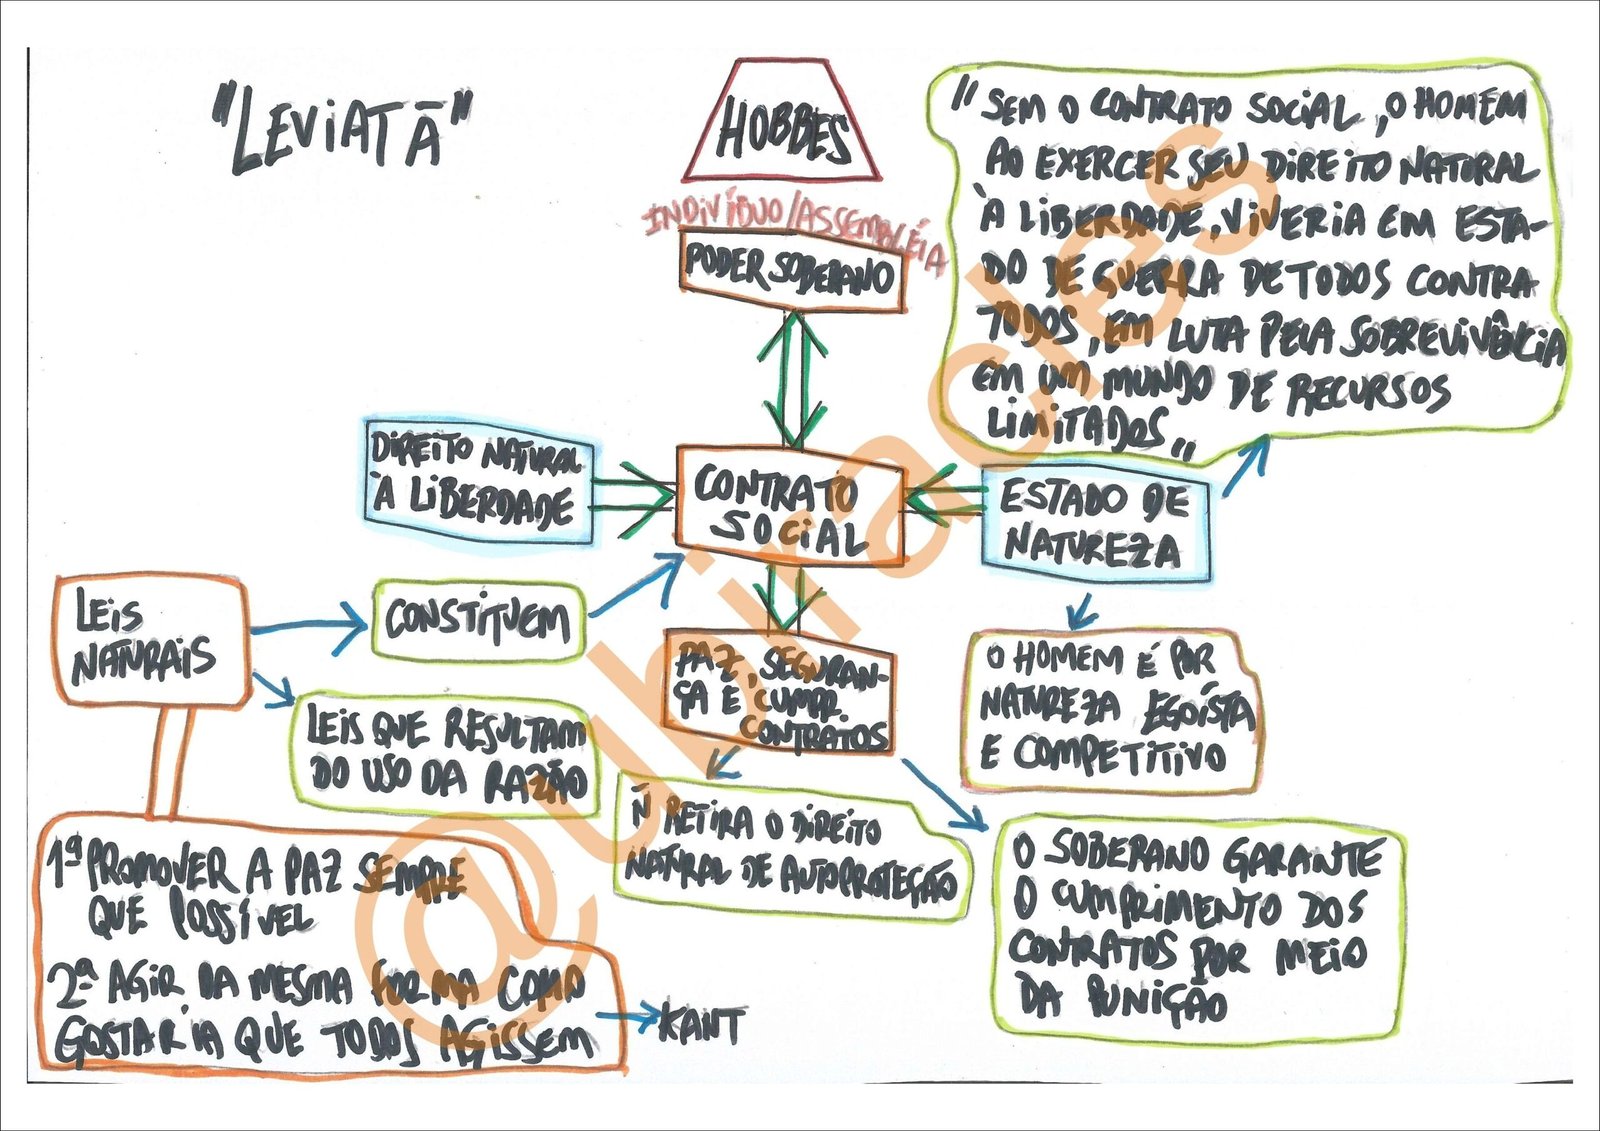 "LEVIATÃ"
HOBBES
INDIVÍBUO/ASSEMBLÉIA
PODER SOBERANO
"SEM O CONTRATO SOCIAL, O HOMEM
AO EXERCER SEU DIREITO NATURAL
À LIBERDADE, VIVERIA EM ESTA-
DO DE GUERRA DE TODOS CONTRA
TODOS, EM LUTA PELA SOBREVIVÊNCIA
EM UM MUNDO DE RECURSOS
LIMITADOS"
DIREITO NATURAL
À LIBERDADE
CONTRATO
SOCIAL
ESTADO DE
NATUREZA
LEIS
NATURAIS
CONSTITUEM
LEIS QUE RESULTAM
DO USO DA RAZÃO
PAZ, SEGURAN-
ÇA E CUMPR.
CONTRATOS
O HOMEM É POR
NATUREZA EGOÍSTA
E COMPETITIVO
Ñ RETIRA O DIREITO
NATURAL DE AUTOPROTEÇÃO
O SOBERANO GARANTE
O CUMPRIMENTO DOS
CONTRATOS POR MEIO
DA PUNIÇÃO
1ª PROMOVER A PAZ SEMPRE
QUE POSSÍVEL
2ª AGIR DA MESMA FORMA COMO
GOSTARIA QUE TODOS AGISSEM
KANT
@ubiracies